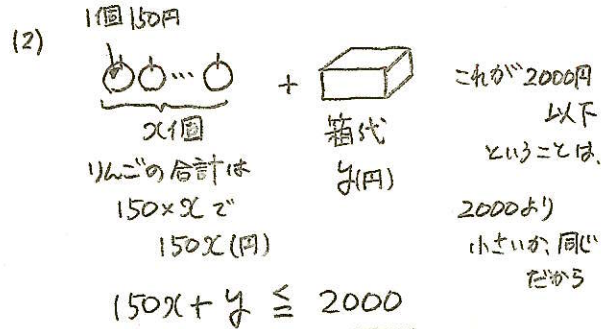 (2)
1個150円
… +
x個
箱代
y(円)
りんごの合計は
150×xで
150x(円)
これが2000円
以下
ということは、
2000より
小さいか、同じ
だから
150x+y ≦ 2000